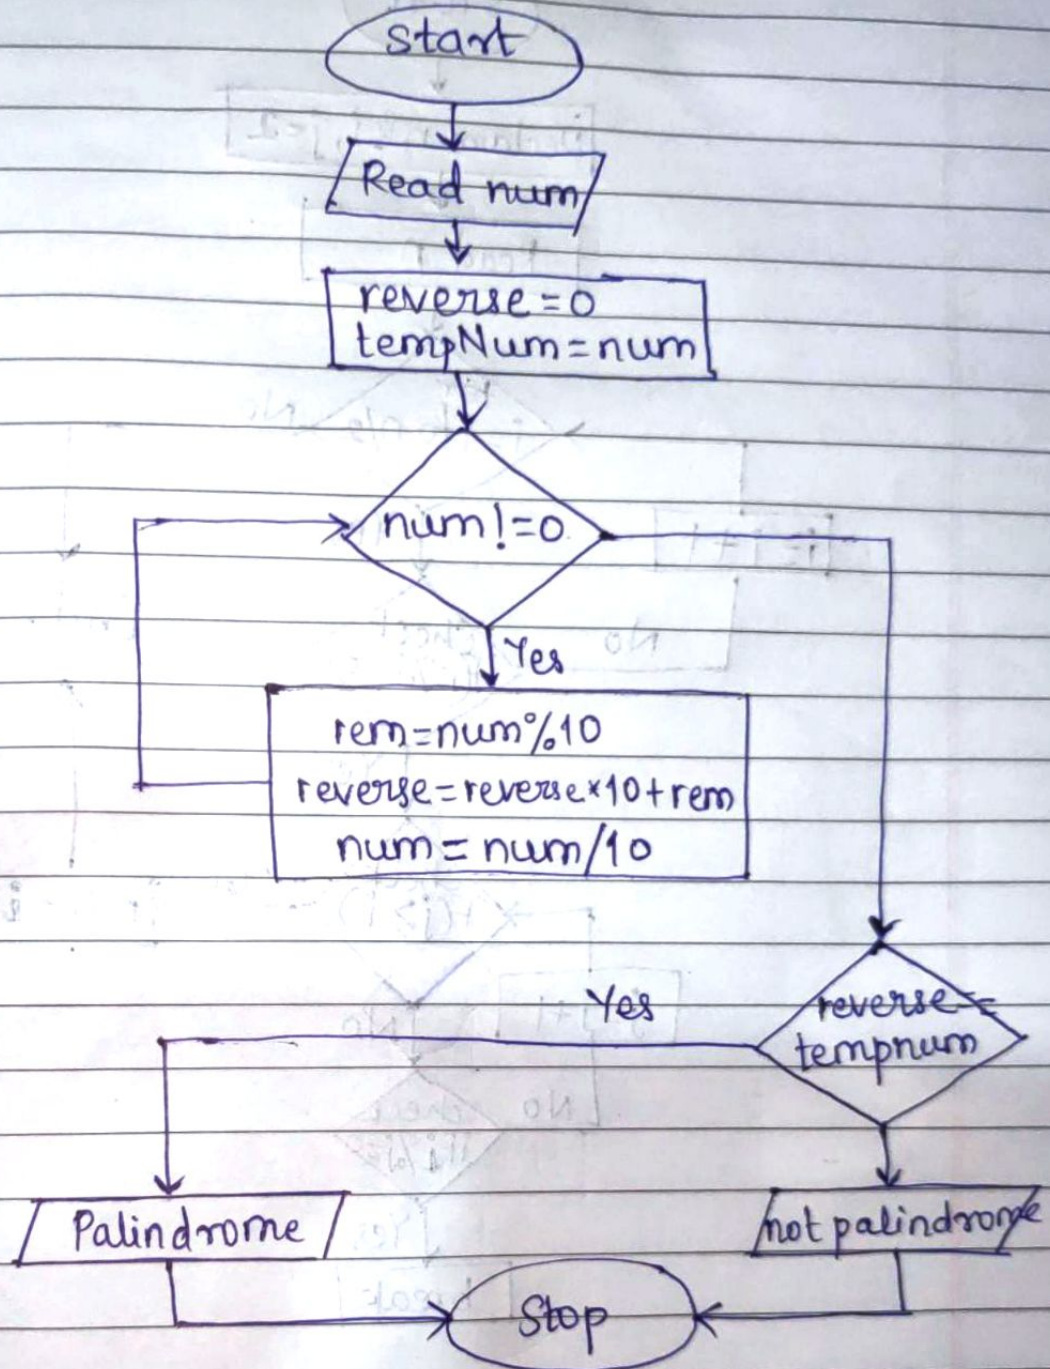 start
Read num
reverse=0
tempNum=num
num!=0
Yes
rem=num%10
reverse=reverse*10+rem
num=num/10
Yes
reverse=
tempnum
Palindrome
not palindrome
Stop